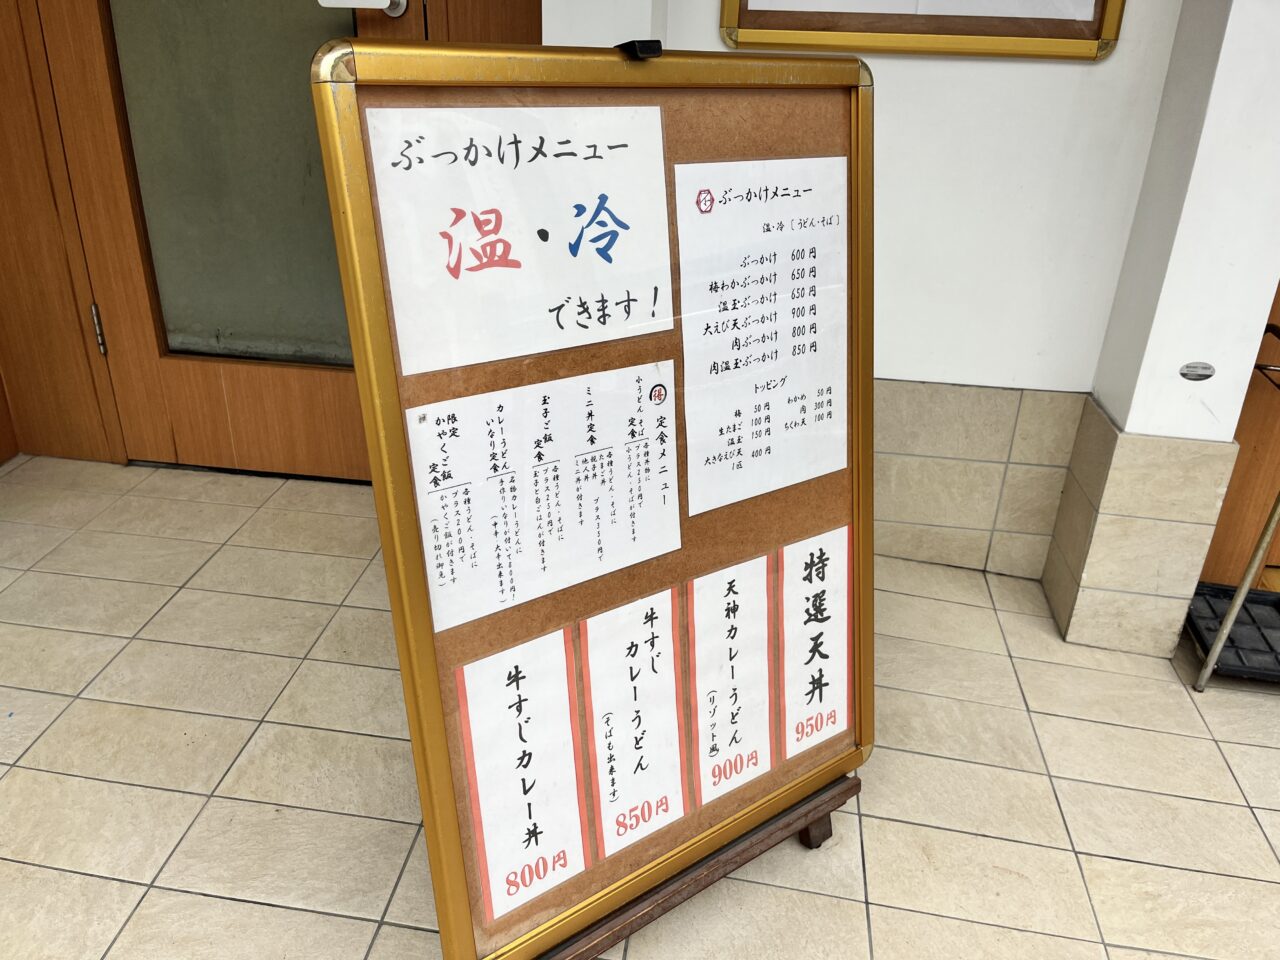 ぶっかけメニュー
温・冷
できます！
ぶっかけメニュー
温・冷［うどん・そば］
ぶっかけ 600円
梅わかぶっかけ 650円
温玉ぶっかけ 650円
大えび天ぶっかけ 900円
肉ぶっかけ 800円
肉温玉ぶっかけ 850円
トッピング
梅 50円
生たまご 100円
温玉 150円
大きなえび天 1匹 400円
わかめ 50円
肉 300円
ちくわ天 100円
得 定食メニュー
小うどん そば 定食
各種丼物に
プラス250円で
小うどん・そばが付きます
ミニ丼定食
各種うどん・そばに
たまご丼
親子丼 プラス350円で
他人丼
ミニ丼が付きます
玉子ご飯 定食
各種うどん・そばに
プラス250円で
玉子と白ごはんが付きます
カレーうどん
いなり定食
名物カレーうどんに
手作りいなりが付いて800円！
限定
かやくご飯 定食
各種うどん・そばに
プラス200円で
かやくご飯が付きます
（売り切れ御免）
特選天丼
950円
天神カレーうどん
（リゾット風）
900円
牛すじ
カレーうどん
（そばも出来ます）
850円
牛すじカレー丼
800円